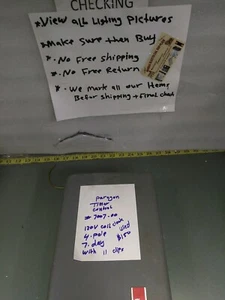 CHECKING
*View all Listing Pictures
*Make Sure then Buy
*. No Free shipping
*. No Free Return
*. We mark all our Items
Before shipping + Final check
paragon
Timer
control
# 7007-00
120V coil clock
4-pole
7-day
with 11 clips
used